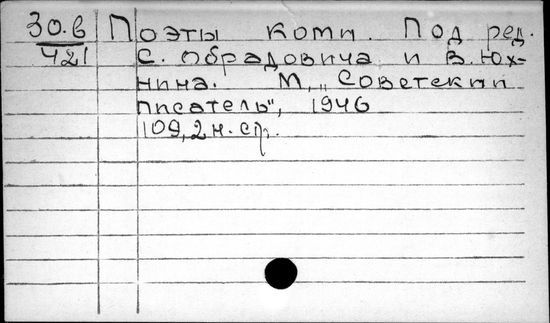 30.в Поэты коми. Под ред.
421 С. Обрадовича и В. Юх-
нина. М., „Советский
писатель", 1946
109, 2 н. стр.